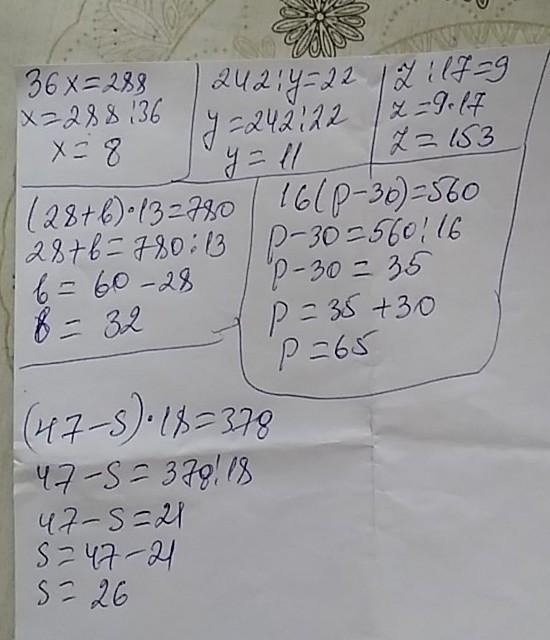 36x=288
x=288:36
x=8
242:y=22
y=242:22
y=11
z:17=9
z=9·17
z=153
(28+b)·13=780
28+b=780:13
b=60-28
b=32
16(p-30)=560
p-30=560:16
p-30=35
p=35+30
p=65
(47-s)·18=378
47-s=378:18
47-s=21
s=47-21
s=26